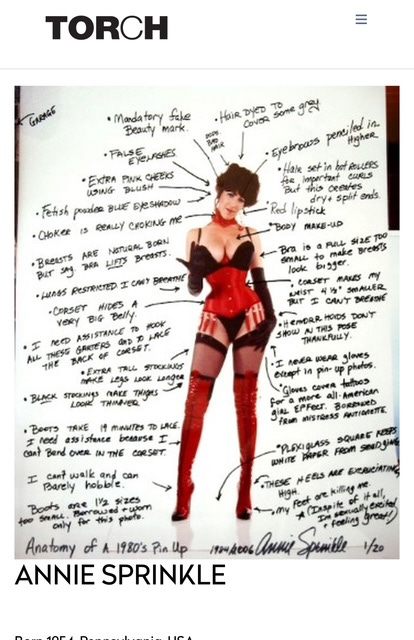 TORCH
GARAGE
• Mandatory fake
Beauty mark.
• HAIR DYED TO
COVER some grey
DYED
BAD
HAIR
• FALSE
EYELASHES
• Eyebrows penciled in
Higher
• EXTRA PINK CHEEKS
USING BLUSH
• Hair set in hot ROLLERS
for important curls
But this creates
dry + split ends.
• Fetish powder BLUE EYESHADOW
Red lipstick
• CHOKER IS REALLY CHOKING ME
• BODY MAKE-UP
• BREASTS ARE NATURAL BORN
BUT SAY BRA LIFTS BREASTS.
Bra is a FULL SIZE TOO
small to make BREASTS
look bigger.
• LUNGS RESTRICTED I CAN'T BREATHE
• CORSET MAKES MY
WAIST 4 ½" SMALLER
BUT I CAN'T BREATHE
• CORSET HIDES A
VERY BIG Belly.
• HEMORRHOIDS DON'T
SHOW IN THIS POSE
THANKFULLY.
• I NEED ASSISTANCE TO HOOK
ALL THESE GARTERS AND TO LACE
THE BACK OF CORSET.
• EXTRA TALL STOCKINGS
MAKE LEGS LOOK LONGER
• I NEVER WEAR gloves
except in pin-up photos.
• BLACK STOCKINGS MAKE THIGHS
LOOK THINNER
• Gloves cover tattoos
for a more all-American
girl EFFECT. BORROWED
FROM MISTRESS ANTOINETTE.
• BOOTS TAKE 19 MINUTES TO LACE.
I need assistance because I
can't Bend over IN THE CORSET.
• PLEXIGLASS SQUARE KEEPS
WHITE PAPER FROM SMUDGING
I can't walk and can
Barely hobble.
• THESE HEELS ARE EXCRUCIATINGLY
HIGH.
• my Feet are killing me.
Boots are 1½ sizes
too small. Borrowed + worn
only for this photo.
★ (Inspite of it all,
I'm sexually excited
+ feeling great!)
Anatomy of A 1980's Pin Up 1984/2006 Annie Sprinkle 1/20
ANNIE SPRINKLE
Born 1954, Pennsylvania, USA